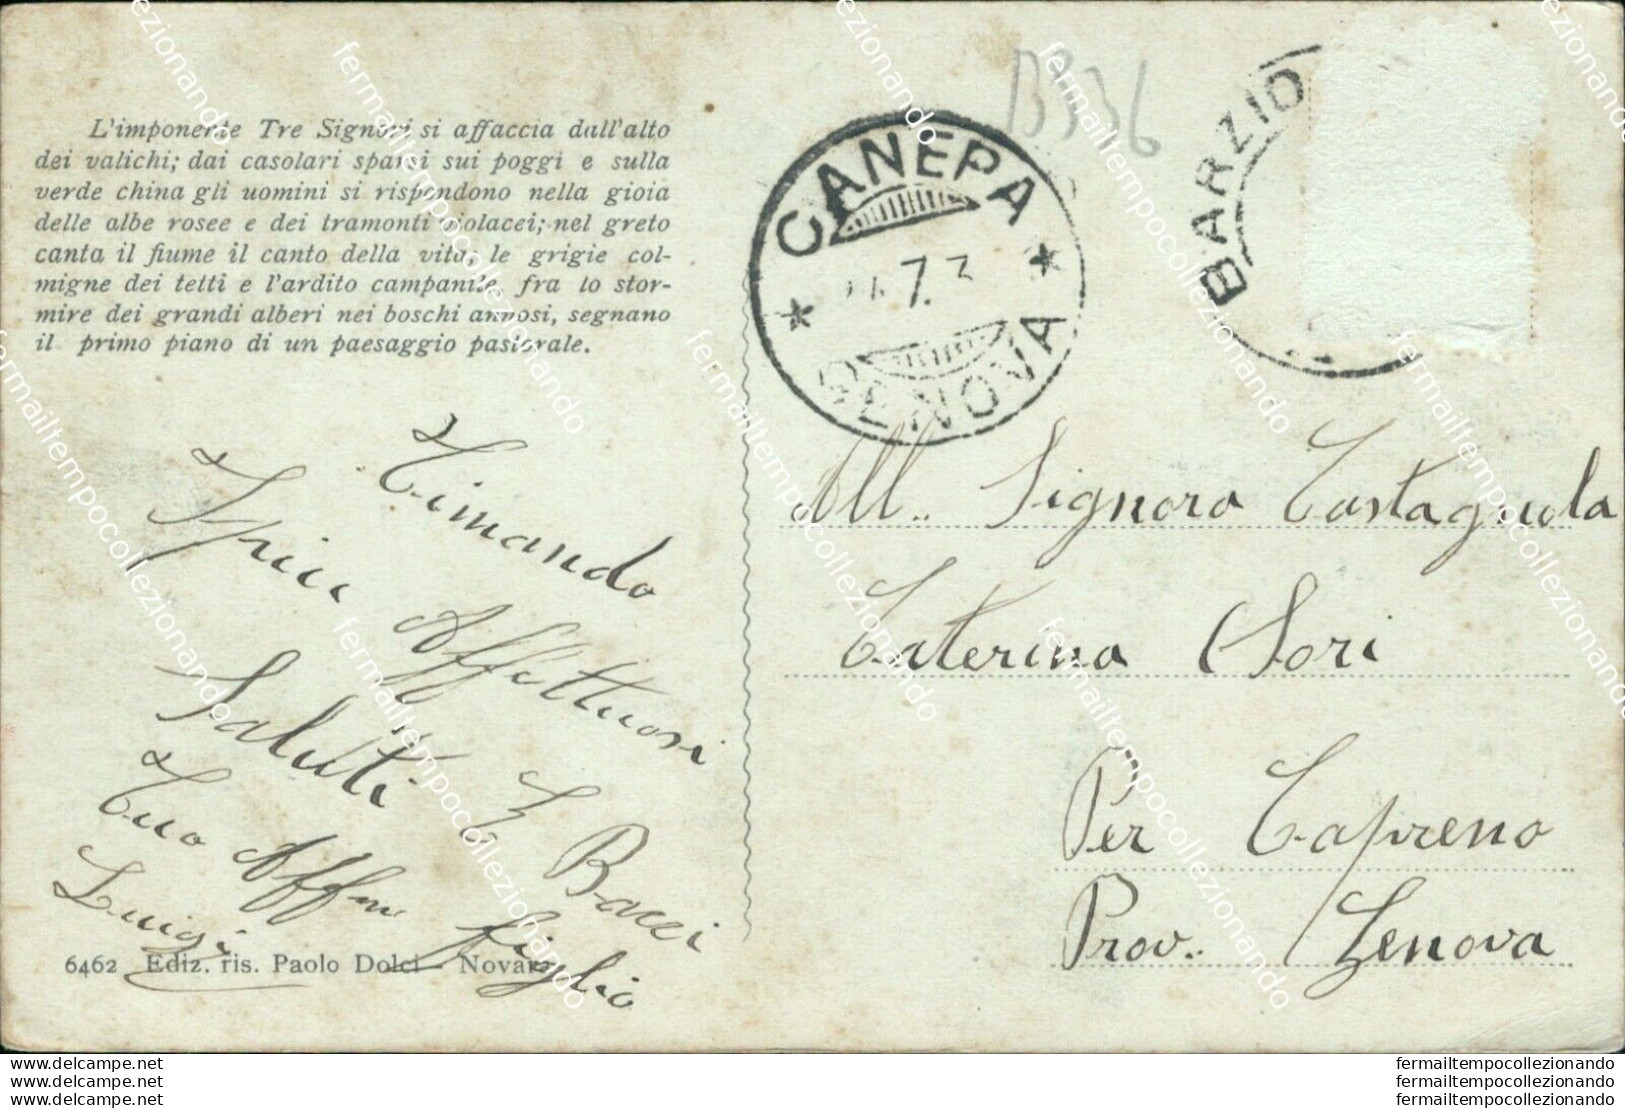 L'imponente Tre Signori si affaccia dall'alto
dei valichi; dai casolari sparsi sui poggi e sulla
verde china gli uomini si rispondono nella gioia
delle albe rosee e dei tramonti violacei; nel greto
canta il fiume il canto della vita; le grigie col-
migne dei tetti e l'ardito campanile, fra lo stor-
mire dei grandi alberi nei boschi annosi, segnano
il primo piano di un paesaggio pastorale.
B336
CANEPA
7.
GENOVA
BARZIO
All.. Signora Castagnola
Caterina Sori
Per Capreno
Prov. Genova
Affettuosi
Saluti E Bacci
Tuo Affmo figlio
Luigi
6462 Ediz. ris. Paolo Dolci - Novara
fermailtempocollezionando
www.delcampe.net
www.delcampe.net
www.delcampe.net
fermailtempocollezionando
fermailtempocollezionando
fermailtempocollezionando